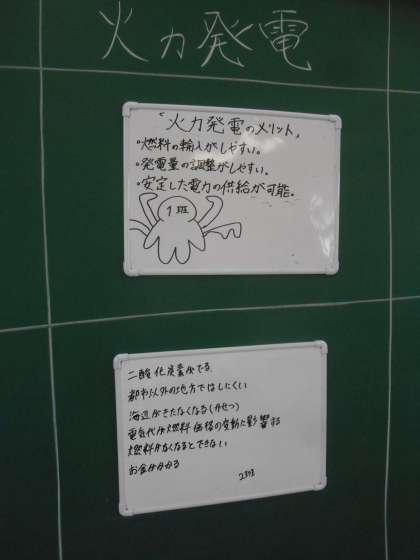 火力発電
「火力発電のメリット」
・燃料の輸入がしやすい。
・発電量の調整がしやすい。
・安定した電力の供給が可能。
1班
二酸化炭素がでる
都市以外の地方ではしにくい
海辺がきたなくなる(かせつ)
電気代が燃料価格の変動に影響する
燃料がなくなるとできない
お金がかかる
2班